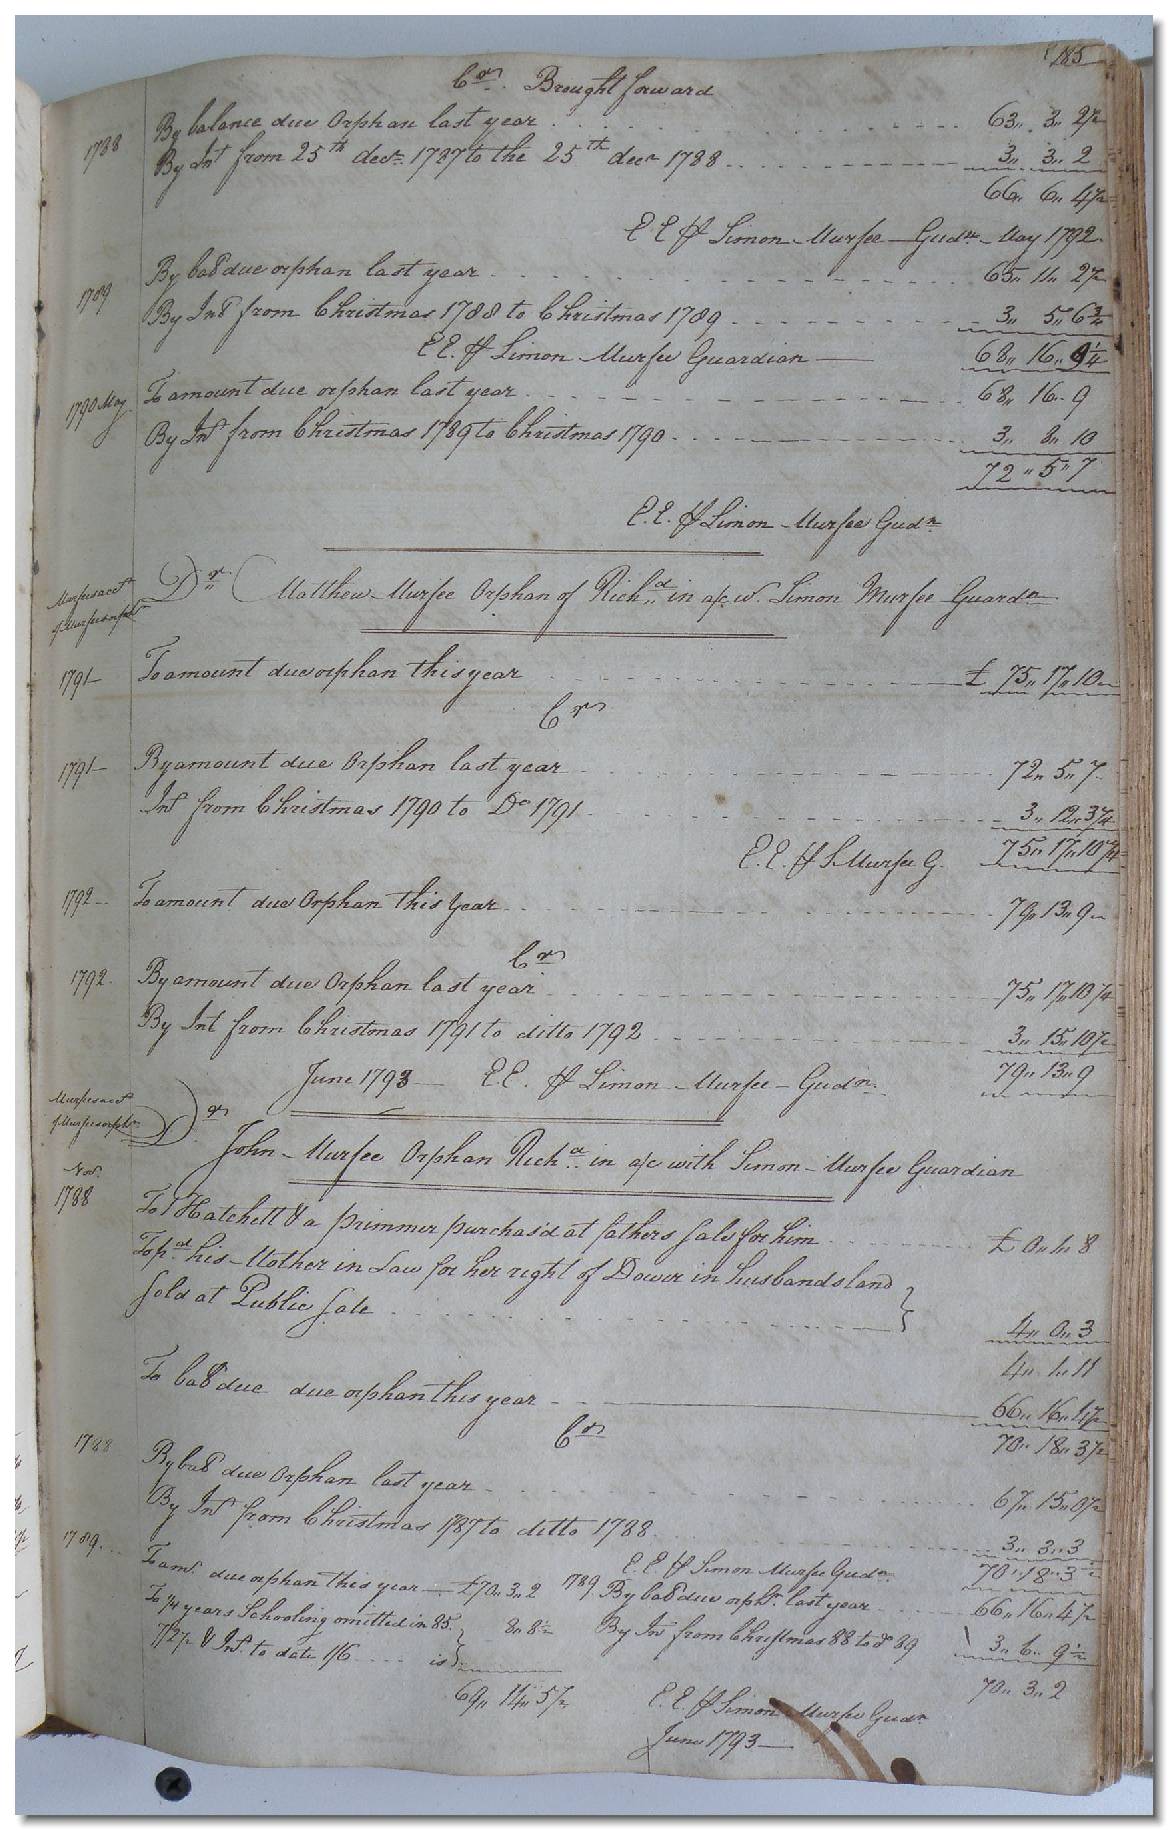 185
Cr. Brought forward
1788 By balance due Orphan last year 63,, 3,, 2½
By Int from 25th decr 1787 to the 25th decr 1788 3,, 3,, 2
66,, 6,, 4½
E E pr Simon Murfee Gudn May 1792
1789 By bal due orphan last year 65,, 11,, 2½
By Int from Christmas 1788 to Christmas 1789 3,, 5,, 6¾
E E. pr Simon Murfee Guardian 68,, 16,, 9¼
1790 May To amount due orphan last year 68,, 16,, 9
By Int from Christmas 1789 to Christmas 1790 3,, 8,, 10
72,, 5,, 7
E. E. pr Simon Murfee Gudn
Murfees acct of Murfees orpht Dr Matthew Murfee Orphan of Richd in a/c w. Simon Murfee Guardn
1791 To amount due orphan this year £ 75,, 17,, 10
Cr
1791 By amount due Orphan last year 72,, 5,, 7
Int from Christmas 1790 to Do 1791 3,, 12,, 3¼
E. E. pr S. Murfee G. 75,, 17,, 10¼
1792 To amount due Orphan this Year 79,, 13,, 9
Cr
1792 By amount due Orphan last year 75,, 17,, 10¼
By Int from Christmas 1791 to ditto 1792 3,, 15,, 10½
79,, 13,, 9
June 1793 E E. pr Simon Murfee Gudn.
Murfees acct of Murfees orpht Dr
John Murfee Orphan Richd in a/c with Simon Murfee Guardian
Novr 1788 To 1 Hatchett & a primmer purchasd at fathers sale for him £ 0,, 1,, 8
To pd his Mother in Law for her right of Dower in husbands land
sold at Public sale 4,, 0,, 3
4,, 1,, 11
To bal due due orphan this year 66,, 16,, 4½
Cr 70,, 18,, 3½
1788 By bal due Orphan last year 67,, 15,, 0½
By Int from Christmas 1787 to ditto 1788 3,, 3,, 3
E. E. pr Simon Murfee Gudn. 70,, 18,, 3½
1789 To amt. due orphan this year £70,, 3,, 2
1789 By bal due orpht. last year 66,, 16,, 4½
To ¼ years Schooling omitted in 85. 8,, 8½
By Int from Christmas 88 to do 89 3,, 6,, 9½
7/2½ & Int. to date 1/6 is
69,, 14,, 5½
70,, 3,, 2
E. E. pr Simon Murfee Gudn
June 1793